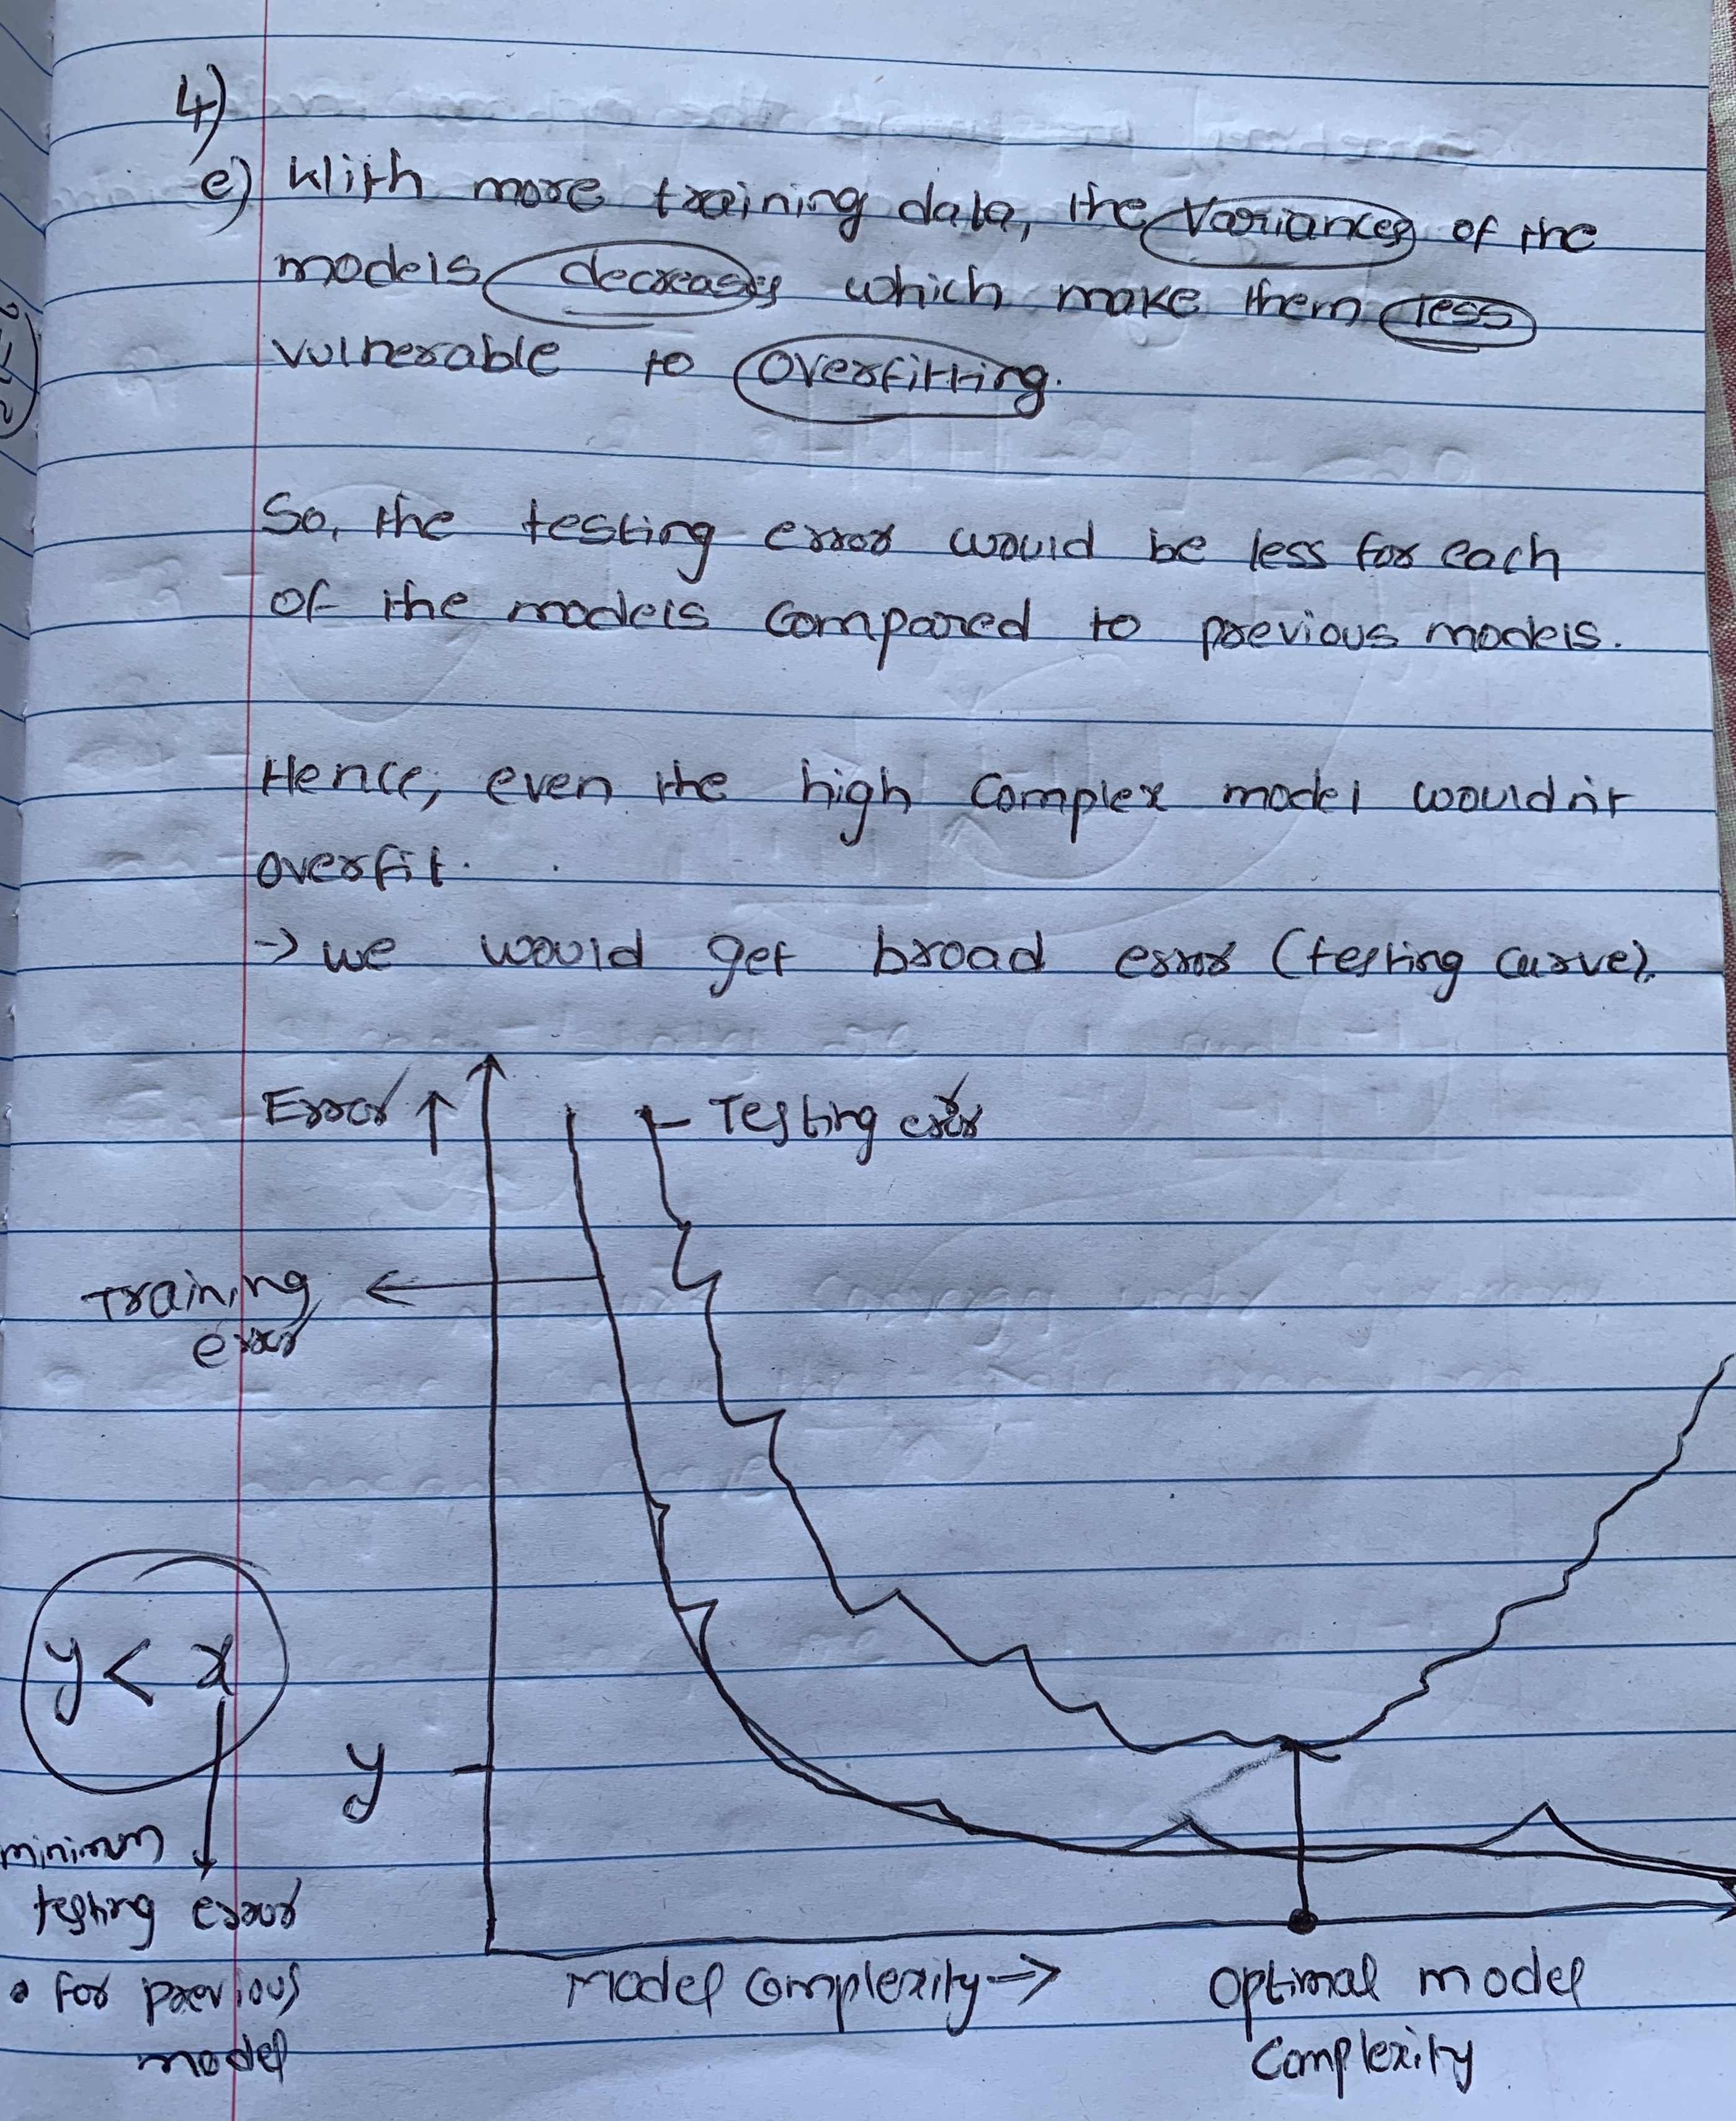 4)
e) With more training data, the variances of the
models decreases which make them less
vulnerable to overfitting.
So, the testing error would be less for each
of the models compared to previous models.
Hence, even the high complex model wouldn't
overfit.
-> we would get broad error (testing curve).
Error ↑
Testing error
Training
error
y < x
y
minimum
testing error
• for previous
model
Model Complexity ->
Optimal model
Complexity